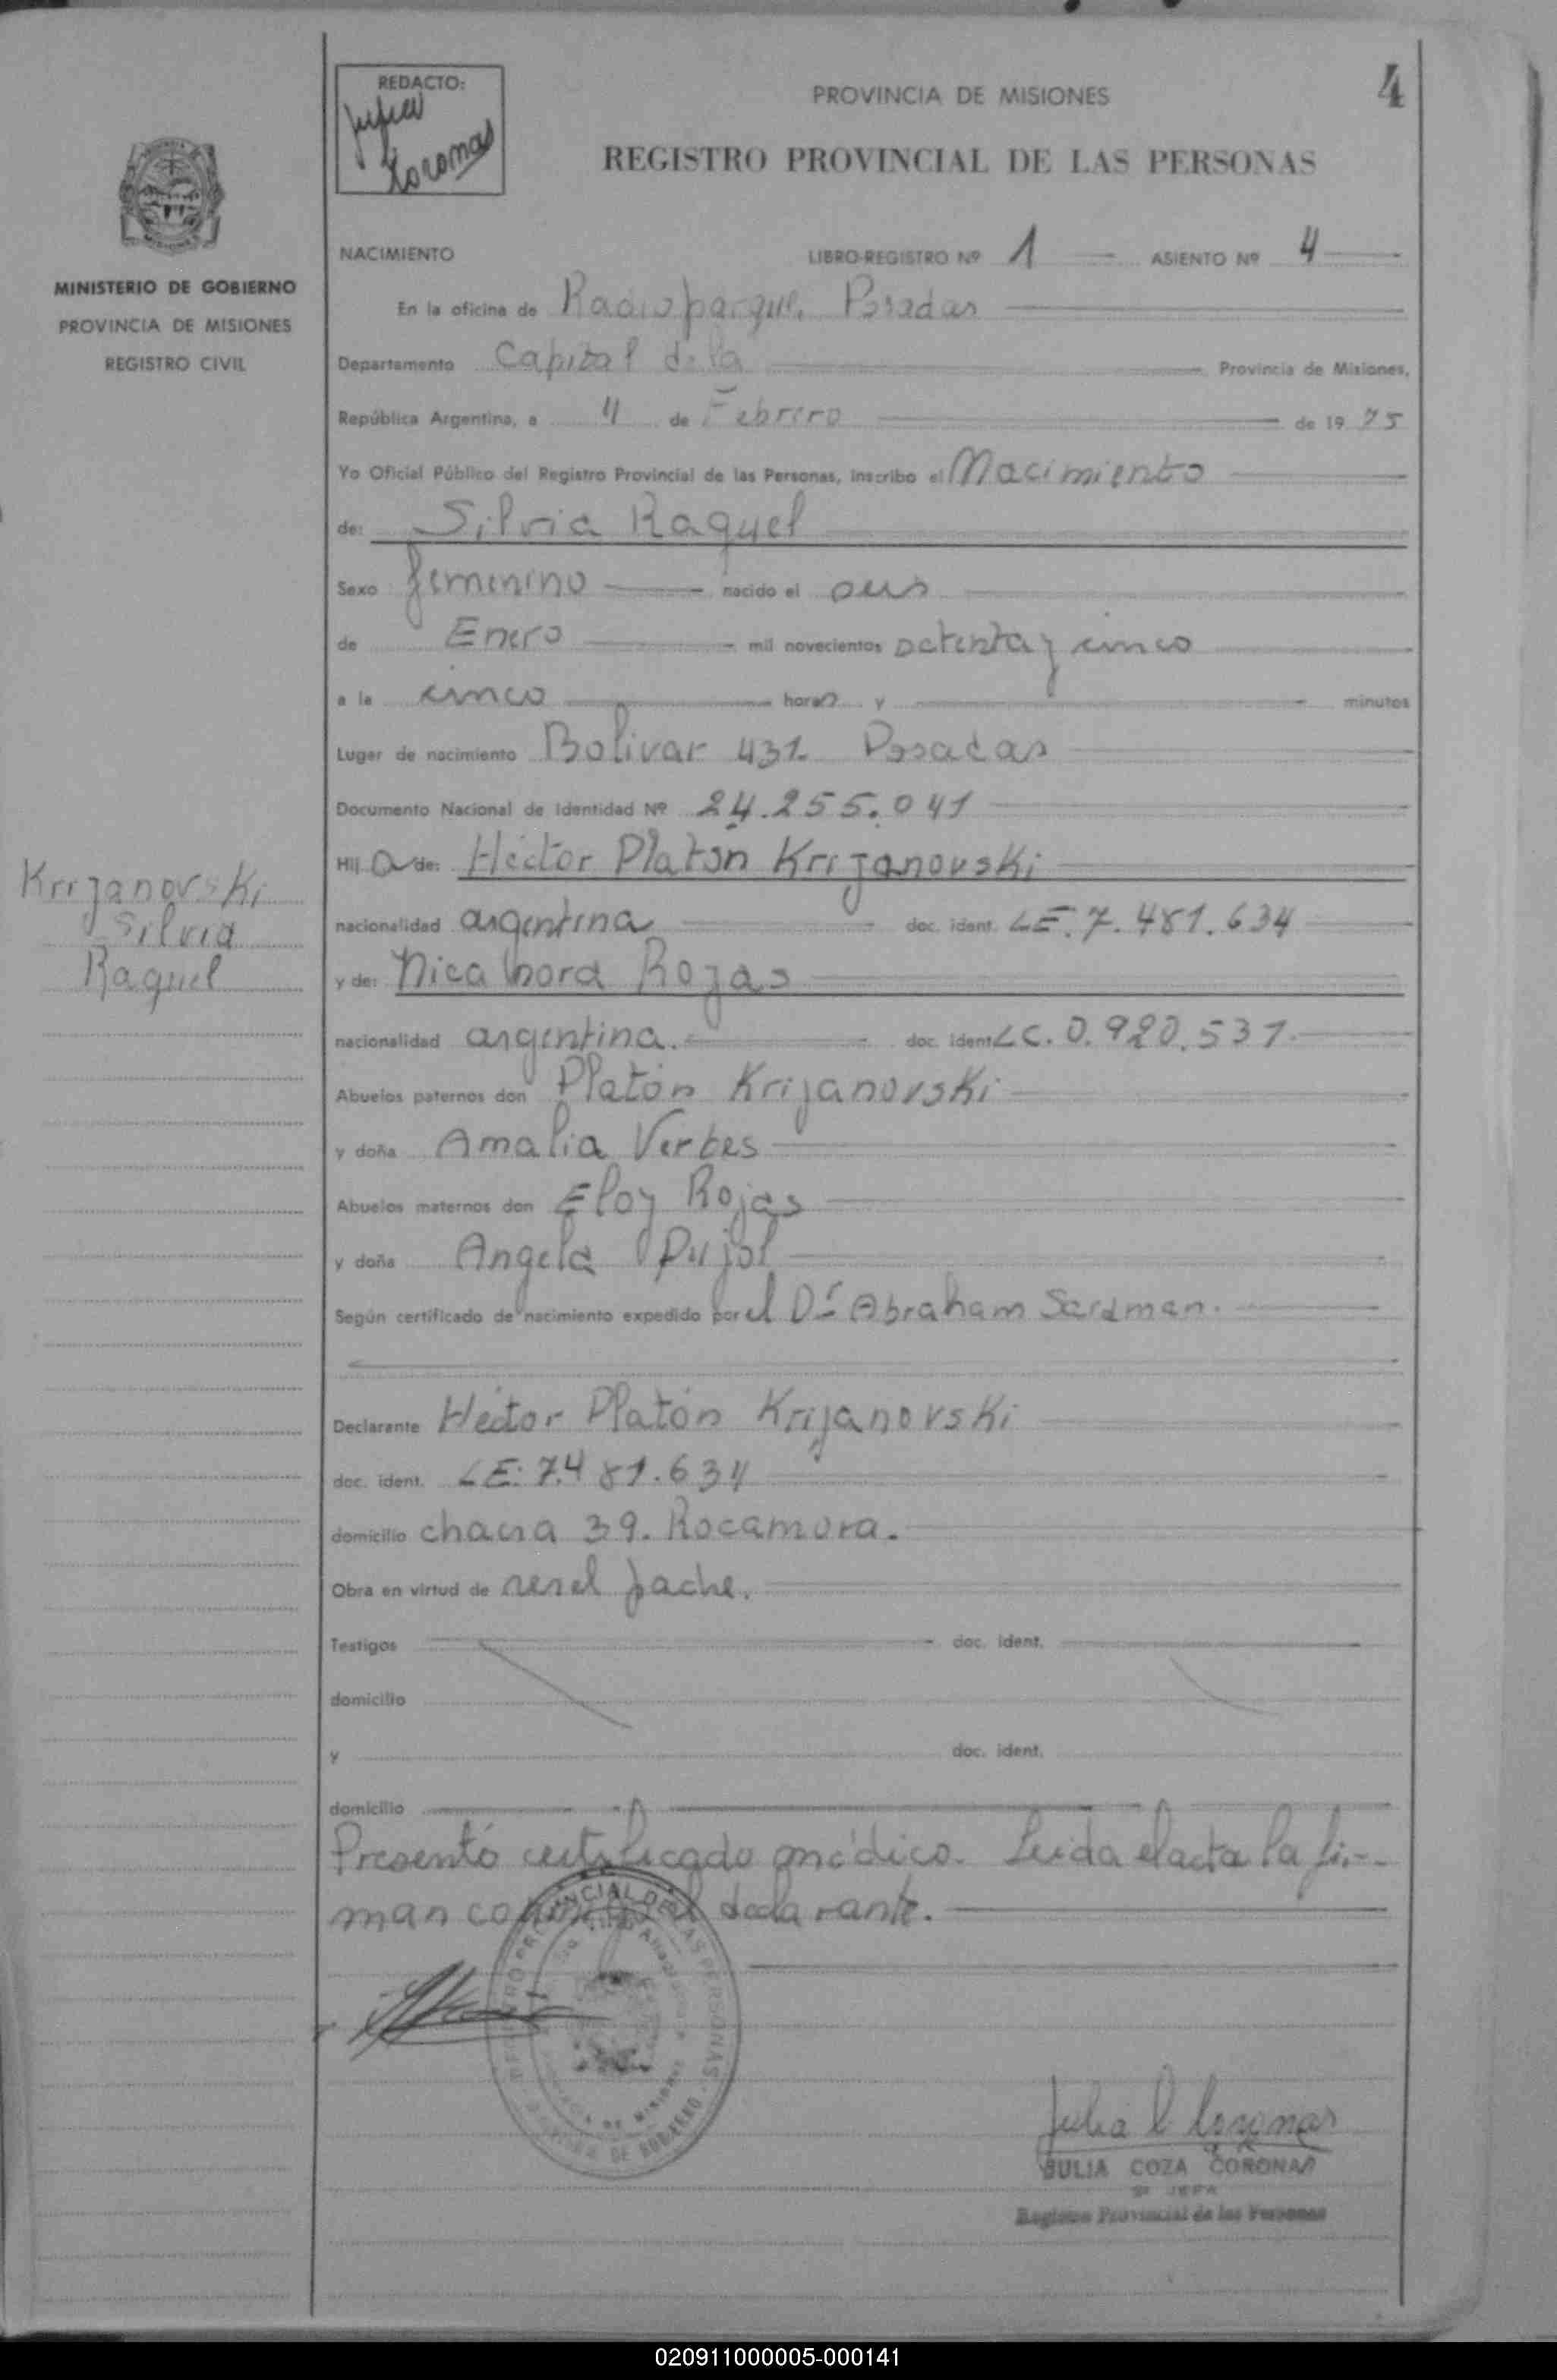 REDACTO:
Julia
Coronas
PROVINCIA DE MISIONES
4
REGISTRO PROVINCIAL DE LAS PERSONAS
MINISTERIO DE GOBIERNO
PROVINCIA DE MISIONES
REGISTRO CIVIL
NACIMIENTO LIBRO-REGISTRO Nº 1 ASIENTO Nº 4
En la oficina de Radioparque Posadas
Departamento Capital de la Provincia de Misiones,
República Argentina, a 4 de Febrero de 1975
Yo Oficial Público del Registro Provincial de las Personas, inscribo el Nacimiento
de: Silvia Raquel
Sexo femenino nacido el
de Enero mil novecientos setenta y cinco
a la cinco horas y minutos
Lugar de nacimiento Bolivar 431 Posadas
Documento Nacional de Identidad Nº 24.255.041
Hij a de: Héctor Platón Krijanovski
Krijanovski
Silvia
Raquel
nacionalidad argentina doc. ident. LE. 7.481.634
y de: Nicanora Rojas
nacionalidad argentina. doc. ident LC. 0.920.531.
Abuelos paternos don Platón Krijanovski
y doña Amalia Verbes
Abuelos maternos don Eloy Rojas
y doña Angela Pujol
Según certificado de nacimiento expedido por el Dr Abraham
Declarante Héctor Platón Krijanovski
doc. ident. LE: 7.481.634
domicilio chacra 39. Rocamora.
Obra en virtud de ser el padre.
Testigos doc. ident.
domicilio
y doc. ident.
domicilio
Presentó certificado médico. Leida el acta la fir-
man conmigo el declarante.
JULIA COZA CORONAS
2ª JEFA
Registro Provincial de las Personas
020911000005-000141